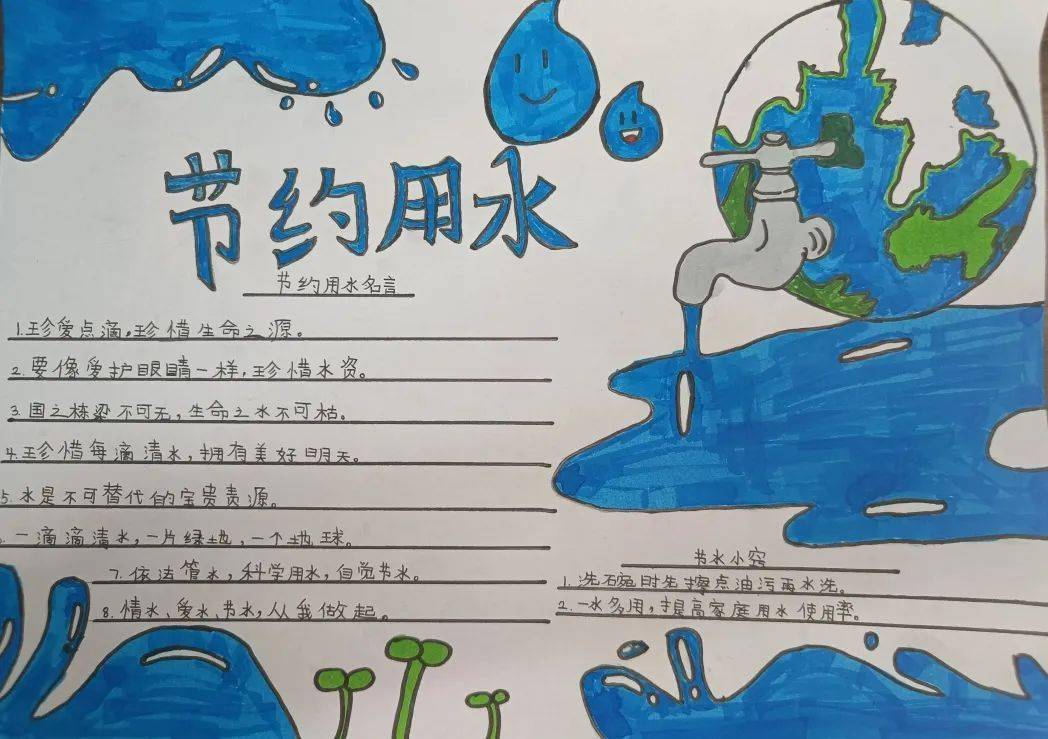 节约用水
节约用水名言
1.珍爱点滴,珍惜生命之源。
2.要像爱护眼睛一样,珍惜水资。
3.国之栋梁不可无,生命之水不可枯。
4.珍惜每滴清水,拥有美好明天。
5.水是不可替代的宝贵责源。
一滴滴清水,一片绿地,一个地球。
7.依法管水,科学用水,自觉节水。
8.情水、爱水、节水,从我做起。
节水小窍
1.洗碗时先擦点油污再水洗。
2.一水多用,提高家庭用水使用率。